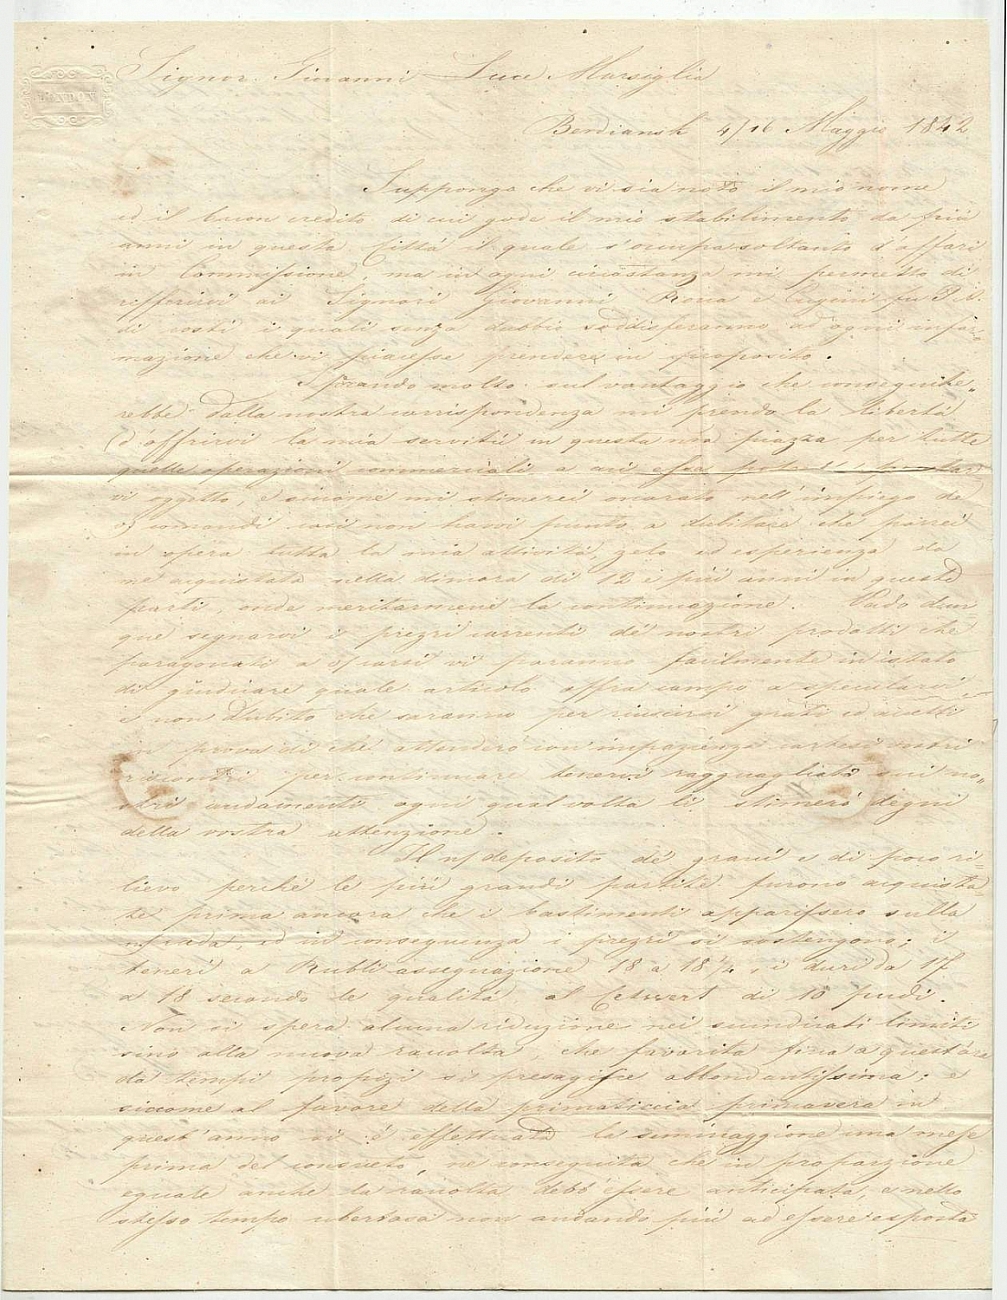 LONDON
Signor Giovanni Luce Marsiglia
Berdiansk 4/16 Maggio 1842
Suppongo che vi sia noto il mio nome
ed il buon credito di cui gode il mio stabilimento da più
anni in questa Città il quale s'occupa soltanto d'affari
in Commissione, ma in ogni circostanza mi permetto di
rifferirvi ai Signori Giovanni Rocca e Cugini fu
di costì i quali senza dubbio soddisferanno ad ogni infor-
mazione che vi piacesse prendere in proposito.
Sperando molto sul vantaggio che conseguite-
rebbe dalla nostra corrispondenza mi prendo la libertà
d'offrirvi la mia servitù in questa mia piazza per tutte
quelle operazioni commerciali a cui essa
vi oggetto, e siccome mi stimerei onorato nell'impiego de'
vj comandi così non havvi punto a dubitare che porrei
in opera tutta la mia attività zelo ed esperienza da
me acquistata nella dimora di 12 e più anni in queste
parti, onde meritarmene la continuazione. Vado dun
que segnarvi i prezzi correnti de' nostri prodotti che
paragonati a vj corsi vi porranno facilmente in istato
di giudicare quale articolo offra campo a specularvi,
e non dubito che saranno per riuscirvi grati ed accetti
in prova di che attenderò con impazienza cortesi vostri
riscontri per continuare tenervi ragguagliato sui no-
stri andamenti ogni qual volta li stimerò degni
della vostra attenzione.
Il nj deposito de' grani è di poco ri-
lievo perchè le più grandi partite furono acquista
te prima ancora che i bastimenti apparissero sulla
nj rada, ed in conseguenza i prezzi si sostengono; i
teneri a Rubli assegnazione 18 a 18 1/2, i duri da 17
a 18 secondo le qualità, al Cetwert di 10 pudi.
Non si spera alcuna riduzione nei suindicati limiti
sino alla nuova raccolta, che favorita fin a quest'ora
da tempi propizi si presagisce abbondantissima; e
siccome al favore della primaticcia primavera in
quest'anno si è effettuata la seminaggione una mese
prima del consueto, ne conseguita che in proporzione
eguale anche la raccolta debb'essere anticipata, e nello
stesso tempo ubertosa non andando più ad essere esposta